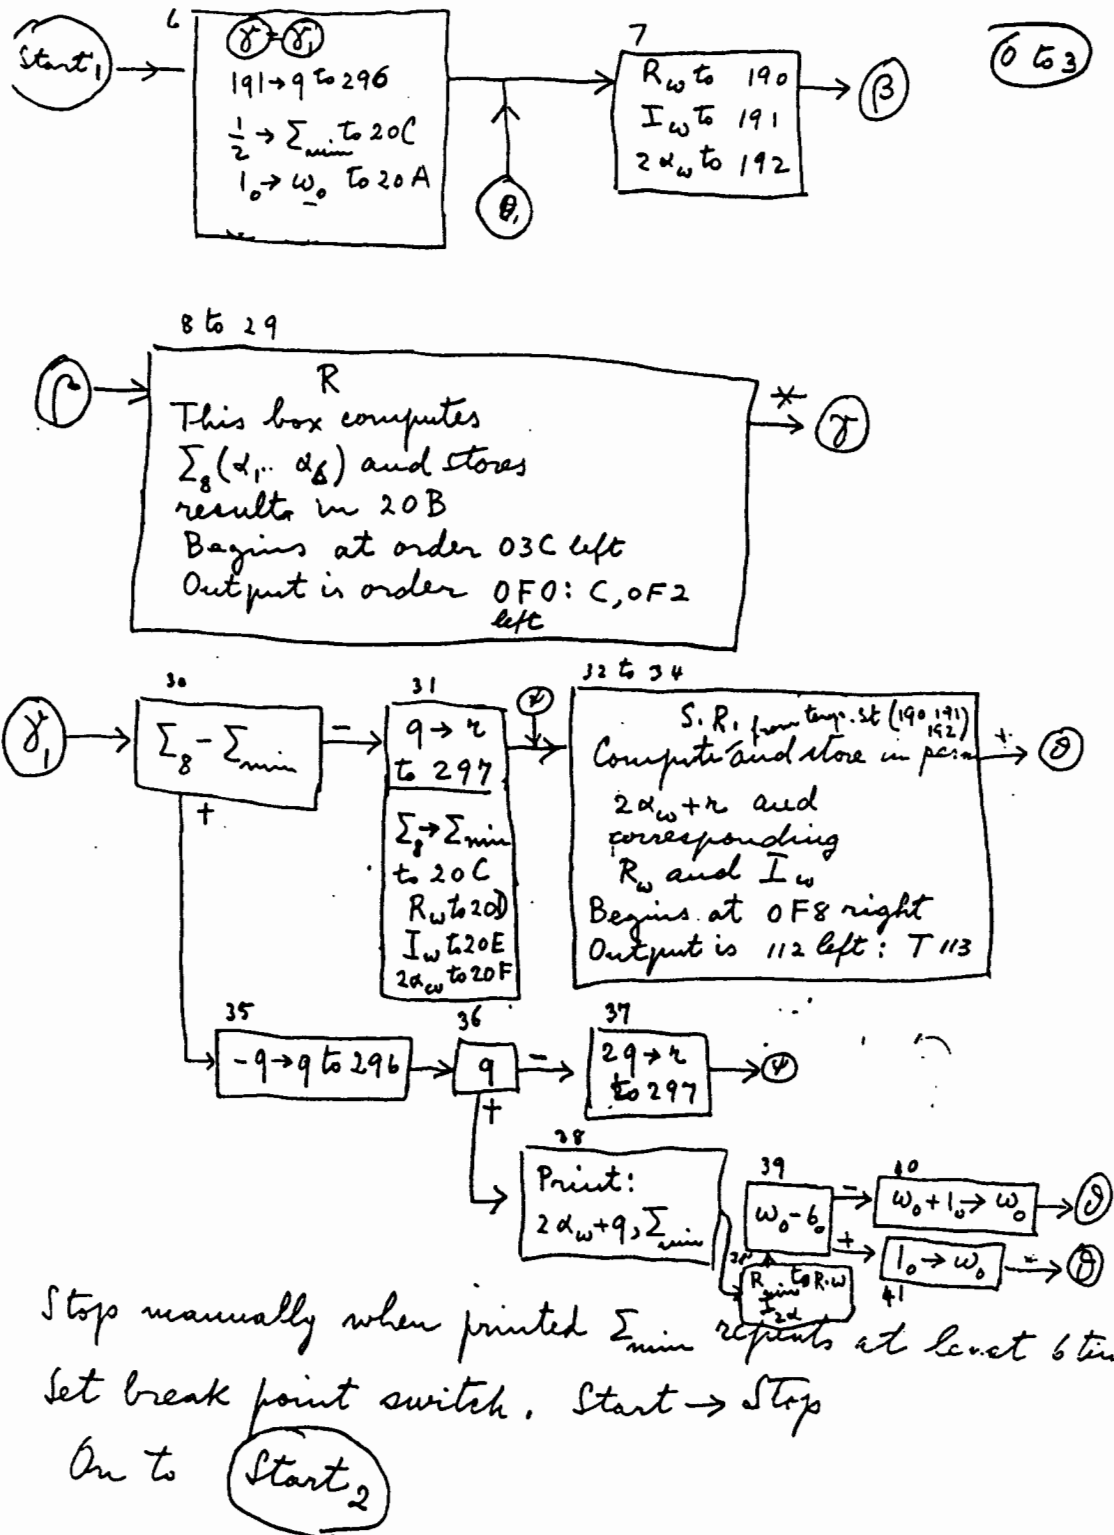 Start₁
6
γ = γ₁
191 → q to 296
½ → Σmin to 20C
1₀ → ω₀ to 20A
7
Rω to 190
Iω to 191
2αω to 192
β
6 to 3
θ₁
8 to 29
R
This box computes
Σ₈(α₁.. α₆) and stores
results in 20B
Begins at order 03C left
Output is order 0F0: C, 0F2
left
γ
γ₁
30
Σ₈ - Σmin
-
+
31
q → r
to 297
Σ₈ → Σmin
to 20C
Rω to 20D
Iω to 20E
2αω to 20F
ψ
32 to 34
S.R. from temp. st (190, 191)
192
Compute and store in perm
2αω + r and
corresponding
Rω and Iω
Begins at 0F8 right
Output is 112 left: T 113
+
θ
35
-q → q to 296
36
q
-
+
37
2q → r
to 297
ψ
38
Print:
2αω + q, Σmin
39
ω₀ - 6₀
-
+
40
ω₀ + 1₀ → ω₀
θ
1₀ → ω₀
41
θ
Stop manually when printed Σmin repeats at least 6
Set break point switch. Start → Stop
On to Start₂